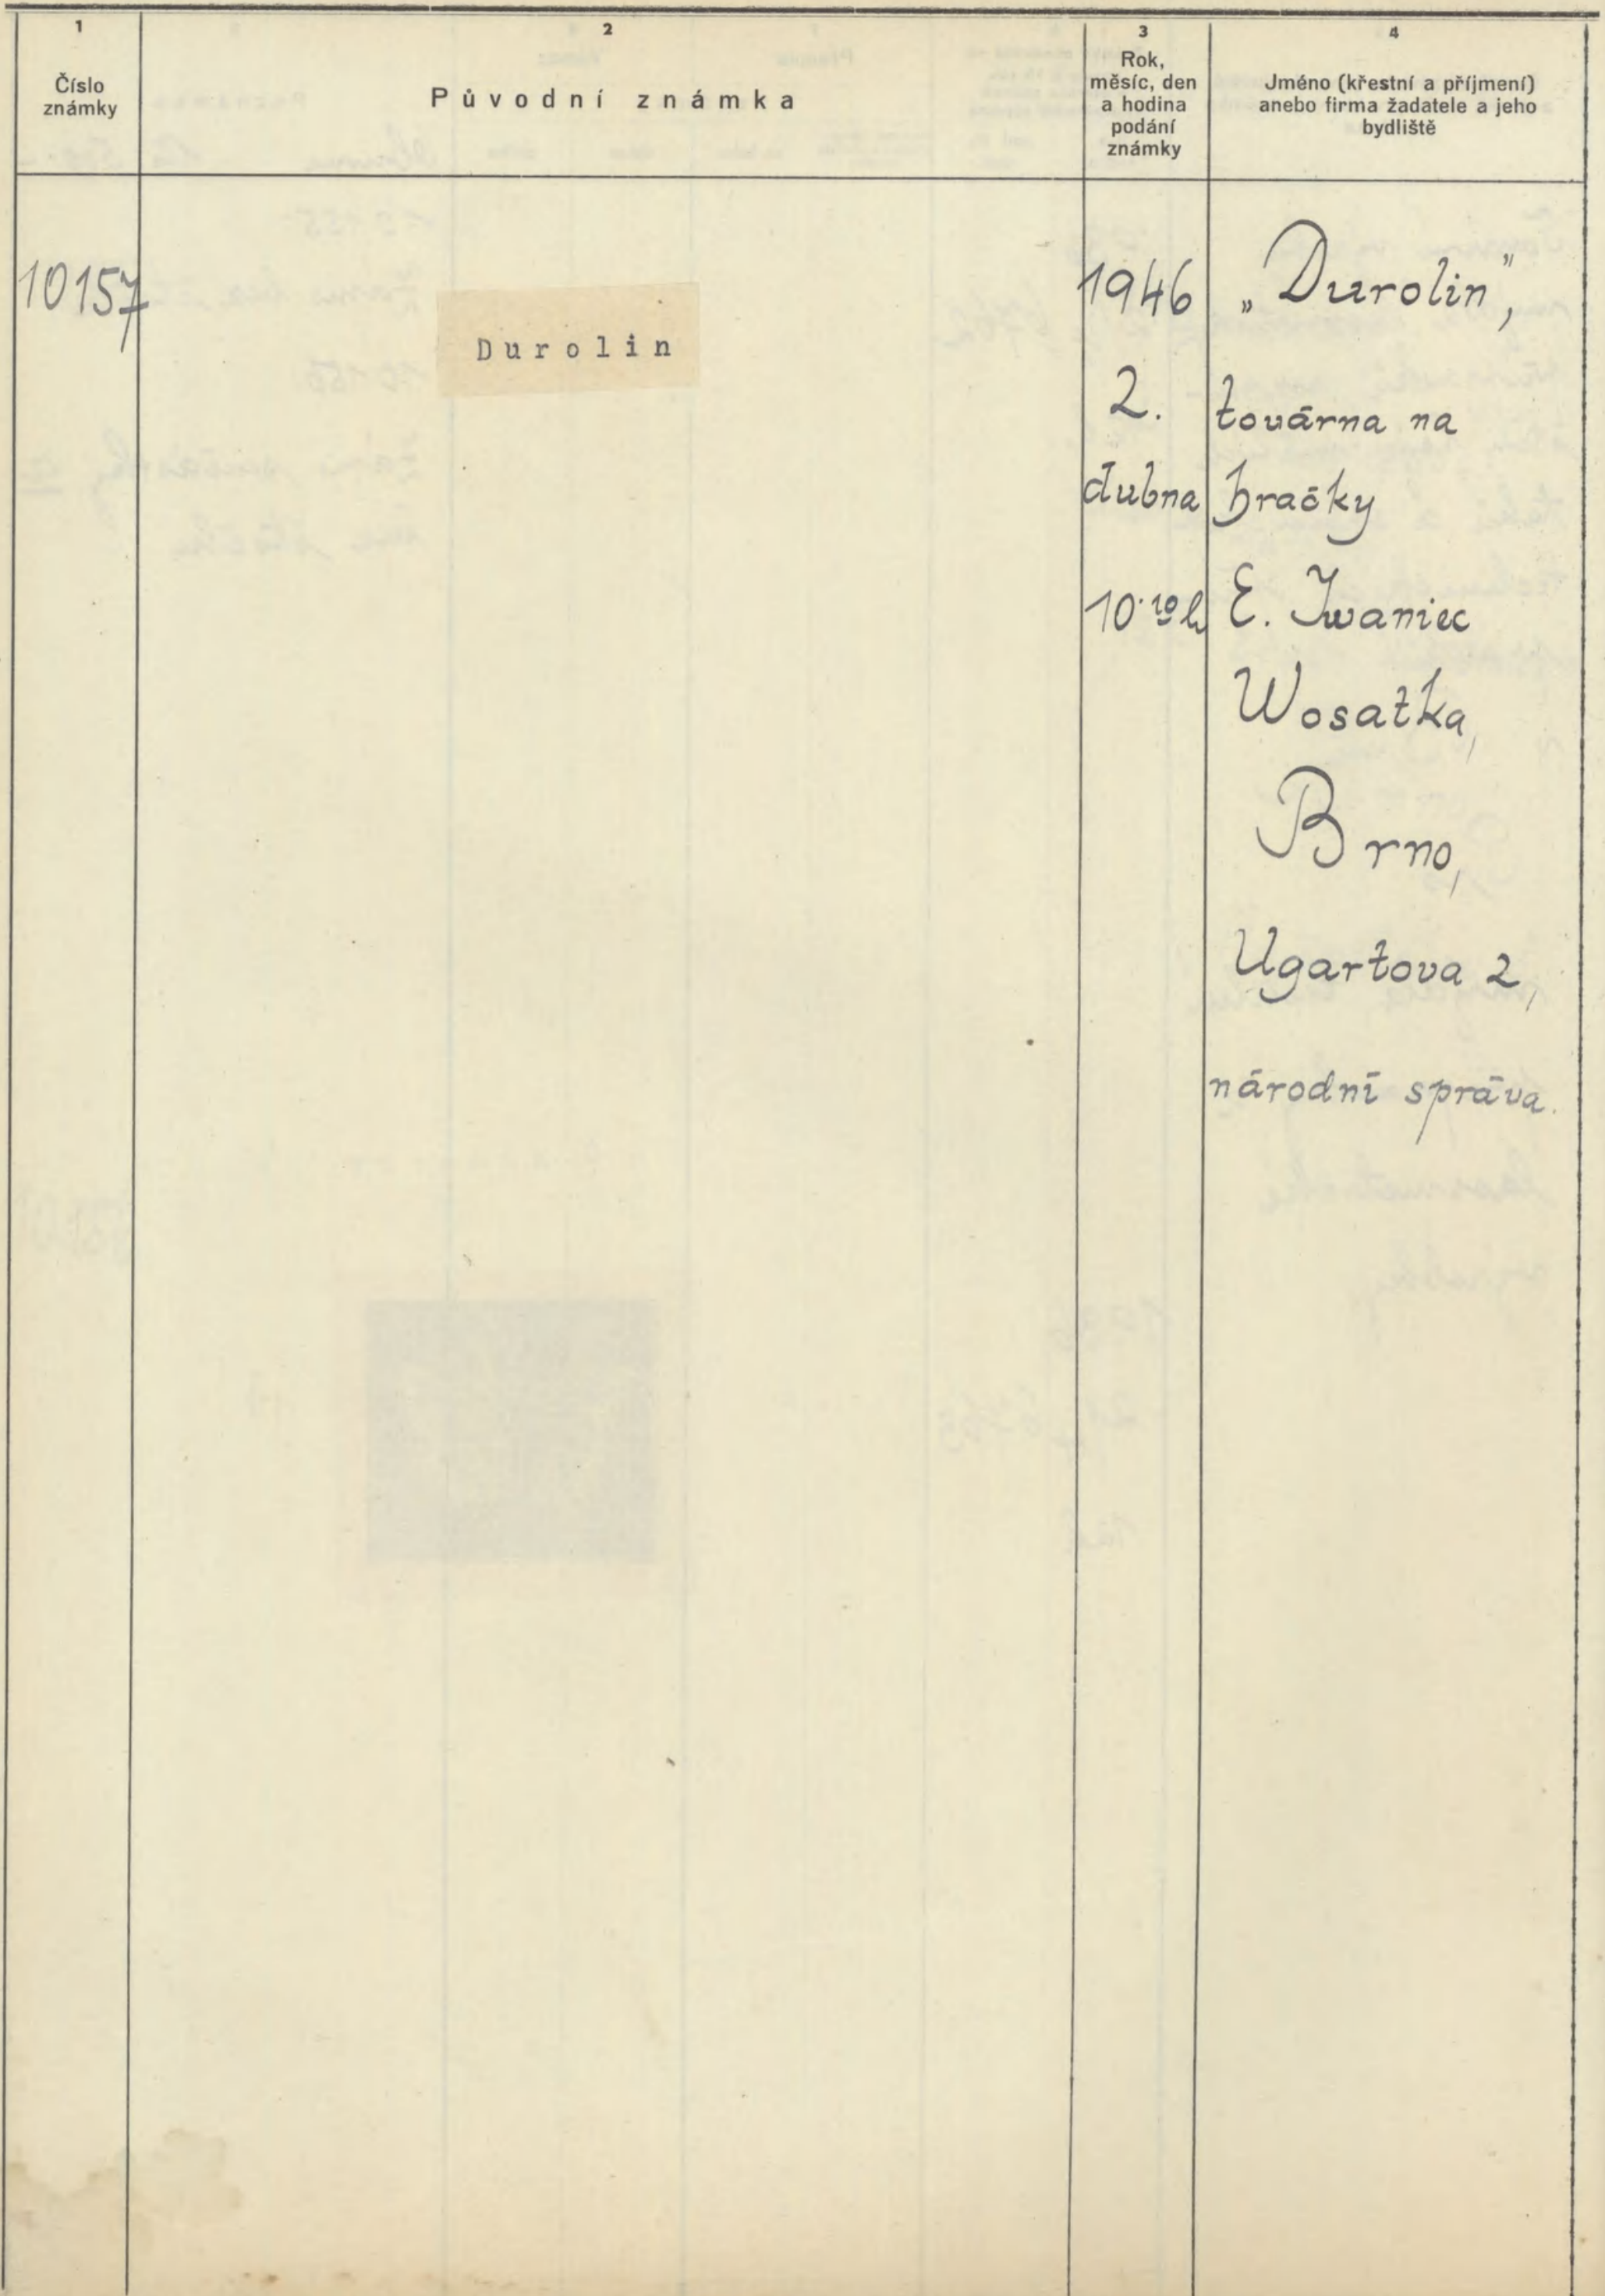 1
Číslo
známky
2
Původní známka
3
Rok,
měsíc, den
a hodina
podání
známky
4
Jméno (křestní a příjmení)
anebo firma žadatele a jeho
bydliště
10157
Durolin
1946
2.
dubna
10.10 h
„Durolin",
továrna na
hračky
E. Iwaniec
Wosatka,
Brno,
Ugartova 2,
národní správa.